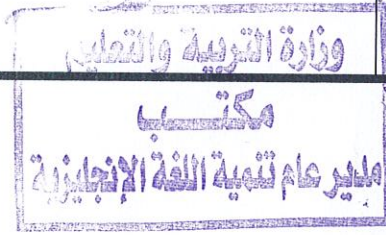 وزارة التربية والتعليم
مكتـــب
مدير عام تنمية اللغة الإنجليزية